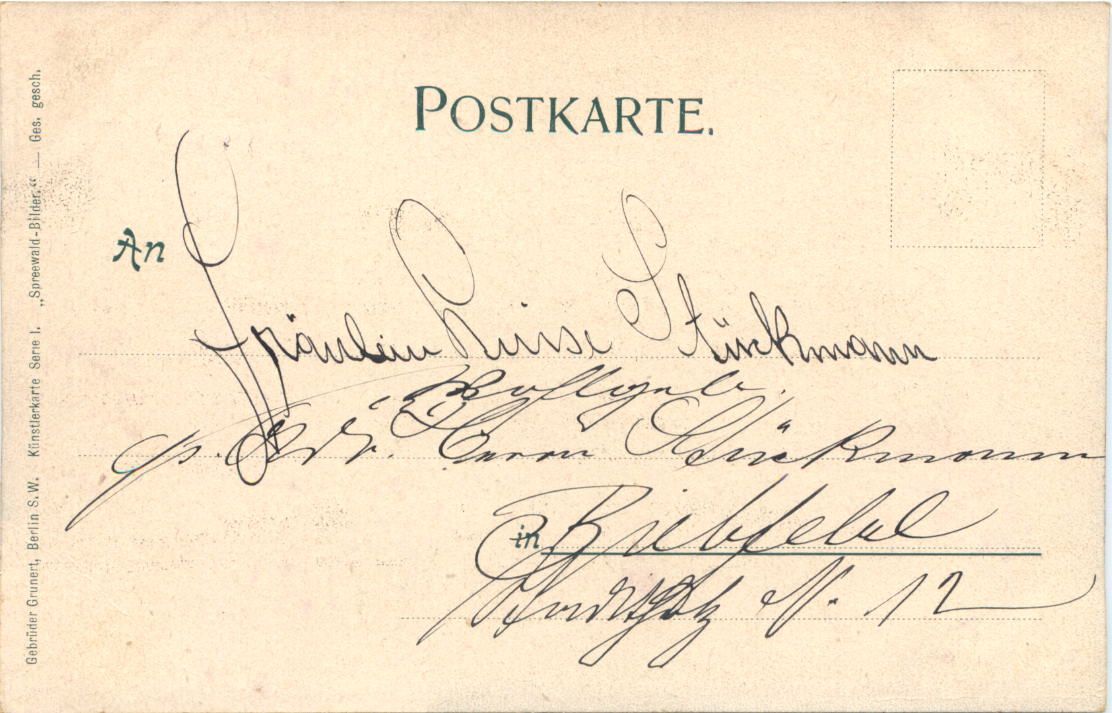 POSTKARTE.
An
Fräulein Luise Stückmann
Wohlgeb.
p. Adr. Herrn Stückmann
in Bielefeld
N. 12
Gebrüder Grunert, Berlin S. W. Künstlerkarte Serie I. „Spreewald-Bilder.“ — Ges. gesch.